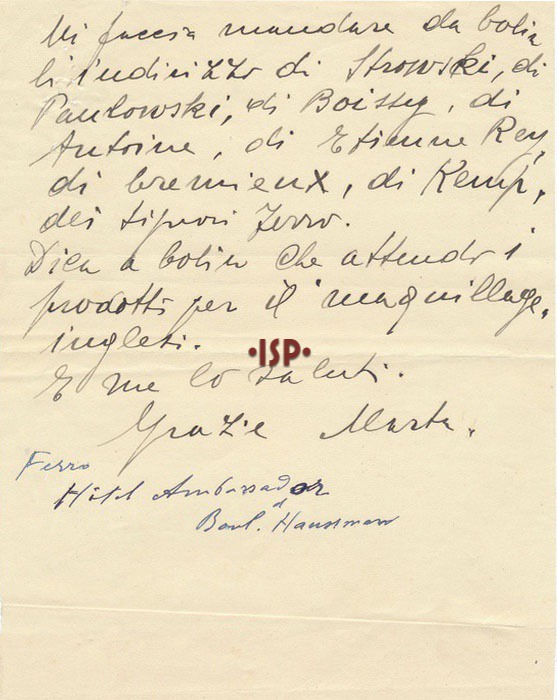 Mi faccia mandare da Colin
l'indirizzo di Strowski, di
Pawlowski, di Boissy, di
Antoine, di Etienne Rey,
di Cremieux, di Kemp,
dei signori Ferro.
Dica a Colin che attendo i
prodotti per il maquillage,
inglesi.
·ISP·
E me lo saluti.
Grazie Marta.
Ferro
Hôtel Ambassador
Boul. d Haussmann